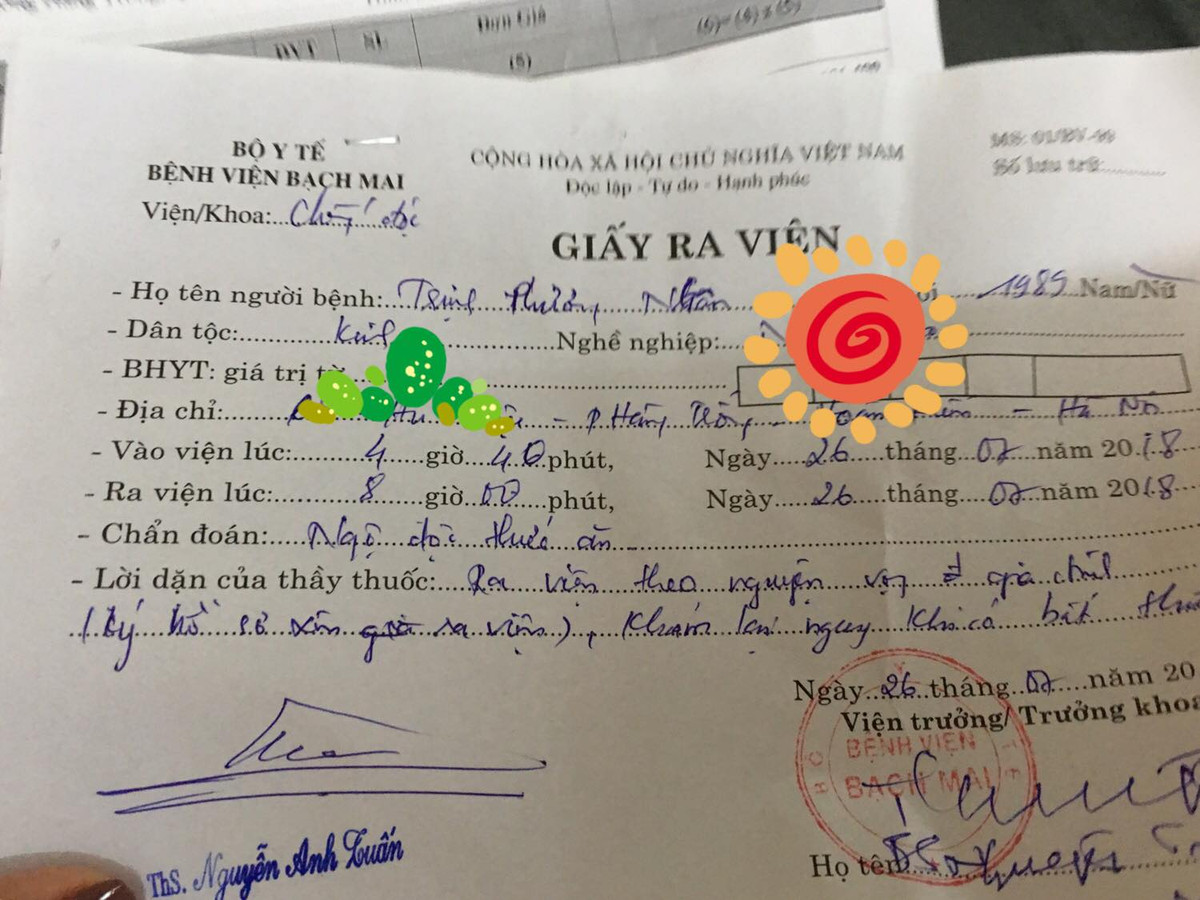 ĐVT SL Đơn Giá (6)=(4)x(5)
(5)
BỘ Y TẾ
BỆNH VIỆN BẠCH MAI
Viện/Khoa: Chống độc
CỘNG HÒA XÃ HỘI CHỦ NGHĨA VIỆT NAM
Độc lập - Tự do - Hạnh phúc
MS: 01/BV-99
Số lưu trữ:
GIẤY RA VIỆN
- Họ tên người bệnh: Trịnh Phương Nhân 1989 Nam/Nữ
- Dân tộc: Kinh Nghề nghiệp:
- BHYT: giá trị từ
- Địa chỉ: - P Hàng Trống - Hoàn Kiếm - Hà Nội
- Vào viện lúc: 4 giờ 40 phút, Ngày 26 tháng 07 năm 2018
- Ra viện lúc: 8 giờ 00 phút, Ngày 26 tháng 07 năm 2018
- Chẩn đoán: Ngộ độc thức ăn
- Lời dặn của thầy thuốc: Ra viện theo nguyện vọng gia đình
(ký hồ sơ xin ra viện), Khám lại ngay khi có bất thường
Ngày 26 tháng 07 năm 20
Viện trưởng/ Trưởng khoa
BỆNH VIỆN
BẠCH MAI
Họ tên
ThS. Nguyễn Anh Tuấn